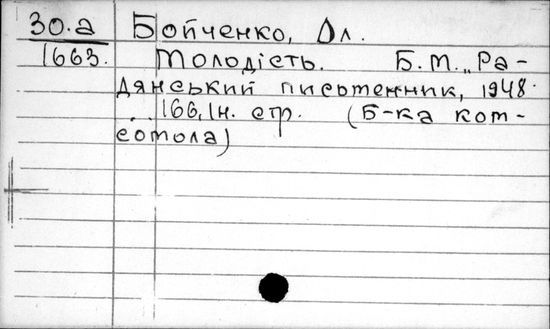 30.а Бойченко, Ол.
1663. Молодість. Б.М. „Ра-
дянський письменник, 1948.
166, 1н. стр. (Б-ка ком-
сомола)